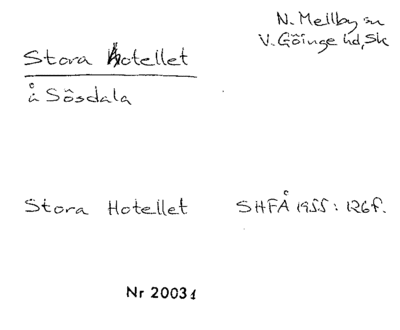 N. Mellby sn
V. Göinge hd, Sk
Stora hotellet
å Sösdala
Stora Hotellet SHFÅ 1955: 126f.
Nr 20031